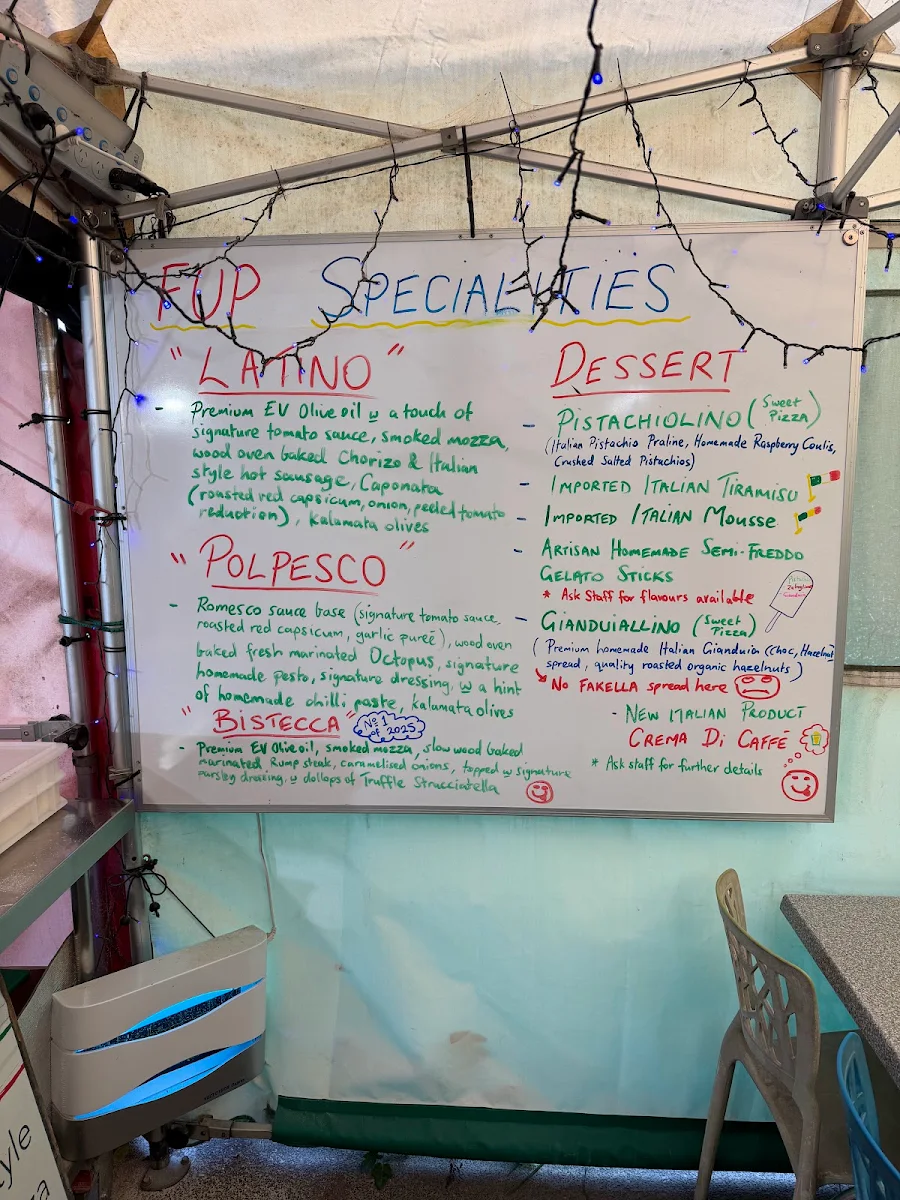 FUP SPECIALITIES
"LATINO"
- Premium EV Olive oil w a touch of
signature tomato sauce, smoked mozza,
wood oven baked Chorizo & Italian
style hot sausage, Caponata
(roasted red capsicum, onion, peeled tomato
reduction), kalamata olives
"POLPESCO"
- Romesco sauce base (signature tomato sauce,
roasted red capsicum, garlic pureé), wood oven
baked fresh marinated Octopus, signature
homemade pesto, signature dressing, w a hint
of homemade chilli paste, kalamata olives
"BISTECCA" No 1 of 2025
- Premium EV Olive oil, smoked mozza, slow wood baked
marinated Rump steak, caramelised onions, topped w signature
parsley dressing, w dollops of Truffle Stracciatella
DESSERT
- PISTACHIOLINO (Sweet PIZZA)
(Italian Pistachio Praline, Homemade Raspberry Coulis,
Crushed Salted Pistachios)
- IMPORTED ITALIAN TIRAMISU
- IMPORTED ITALIAN MOUSSE
- ARTISAN HOMEMADE SEMI-FREDDO
GELATO STICKS
* Ask Staff for flavours available
- GIANDUIALLINO (Sweet Pizza)
(Premium homemade Italian Gianduia (choc, Hazelnut
spread, quality roasted organic hazelnuts)
No FAKELLA spread here
- NEW ITALIAN PRODUCT
CREMA DI CAFFÉ
* Ask staff for further details
yle